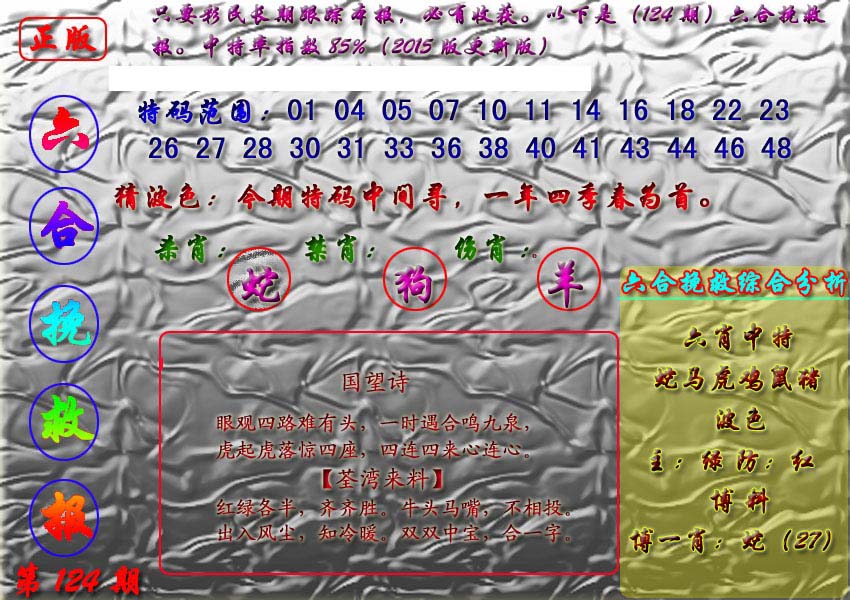 正版
只要彩民长期跟踪本报，必有收获。以下是（124期）六合挽救
报。中特率指数85%（2015版更新版）
六合挽救报
第124期
特码范围：01 04 05 07 10 11 14 16 18 22 23
26 27 28 30 31 33 36 38 40 41 43 44 46 48
猜波色：今期特码中间寻，一年四季春为首。
杀肖：蛇 禁肖：狗 伤肖：羊
国望诗
眼观四路难有头，一时遇合鸣九泉，
虎起虎落惊四座，四连四来心连心。
【荃湾来料】
红绿各半，齐齐胜。牛头马嘴，不相投。
出入风尘，知冷暖。双双中宝，合一字。
六合挽救综合分析
六肖中特
蛇马虎鸡鼠猪
波色
主：绿防：红
博料
博一肖：蛇（27）